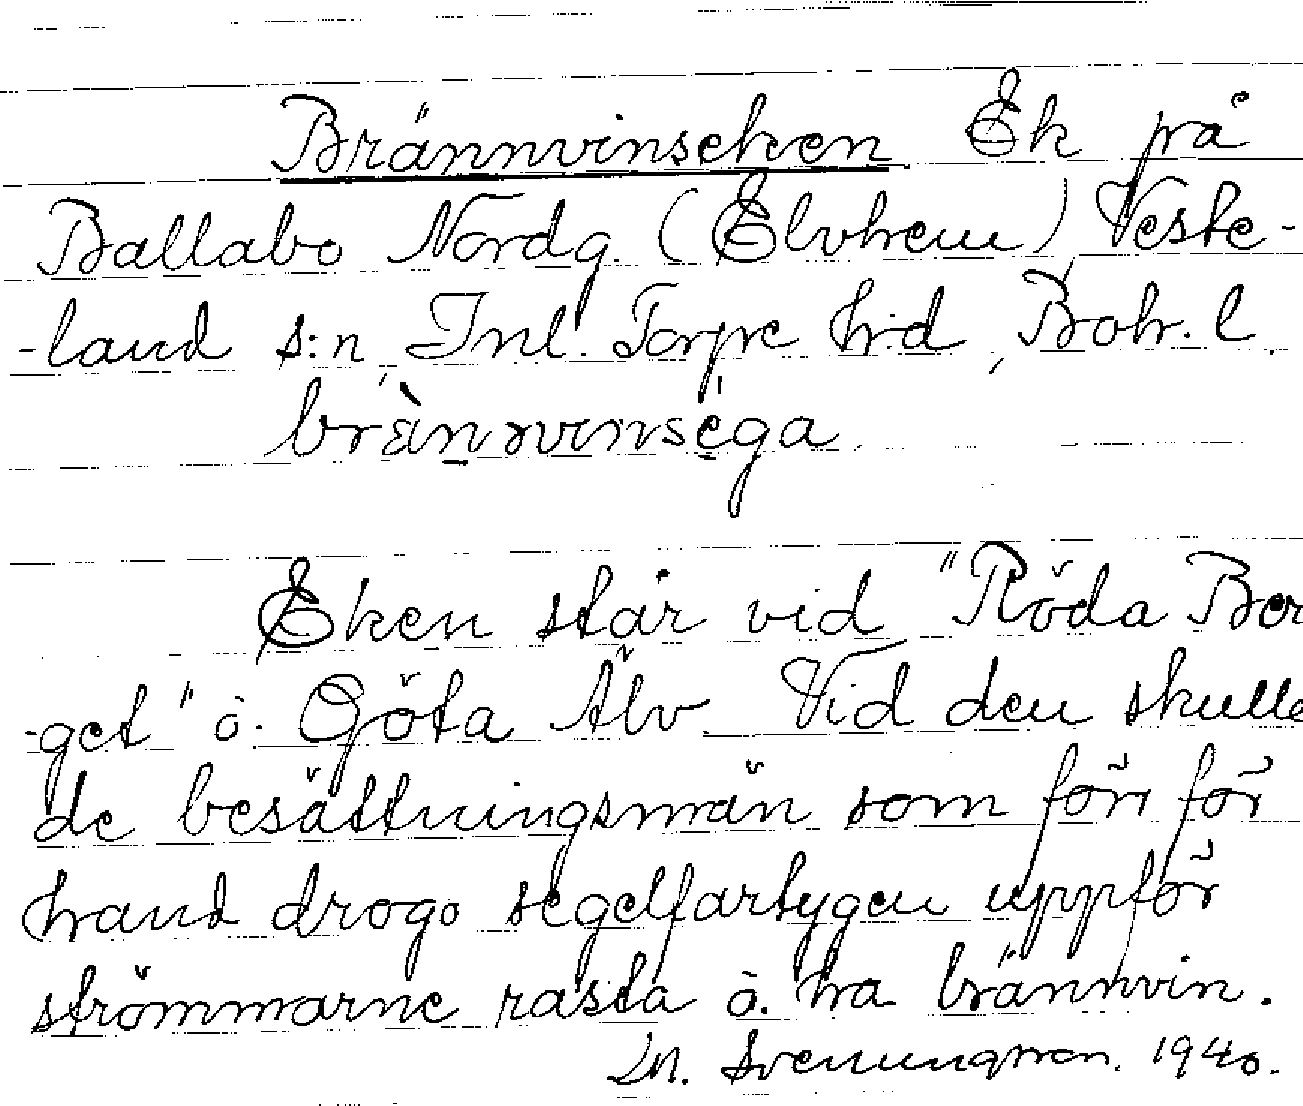 Brännvinseken Ek på
Ballabo Nordg. (Elvhem) Veste-
-land s:n, Inl. Torpe h-d, Boh. l.
brä̀nnvinséga.
Eken står vid "Röda Ber
-get" ö. Göta Älv. Vid den skulle
de besättningsmän som förr för
hand drogo segelfartygen uppför
strömmarne rasta o. ha brännvin.
M. Svenungsson. 1940.